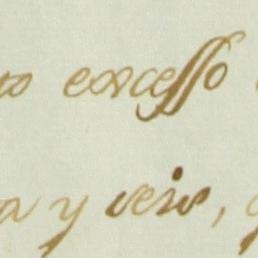 to excesso
a y veio,